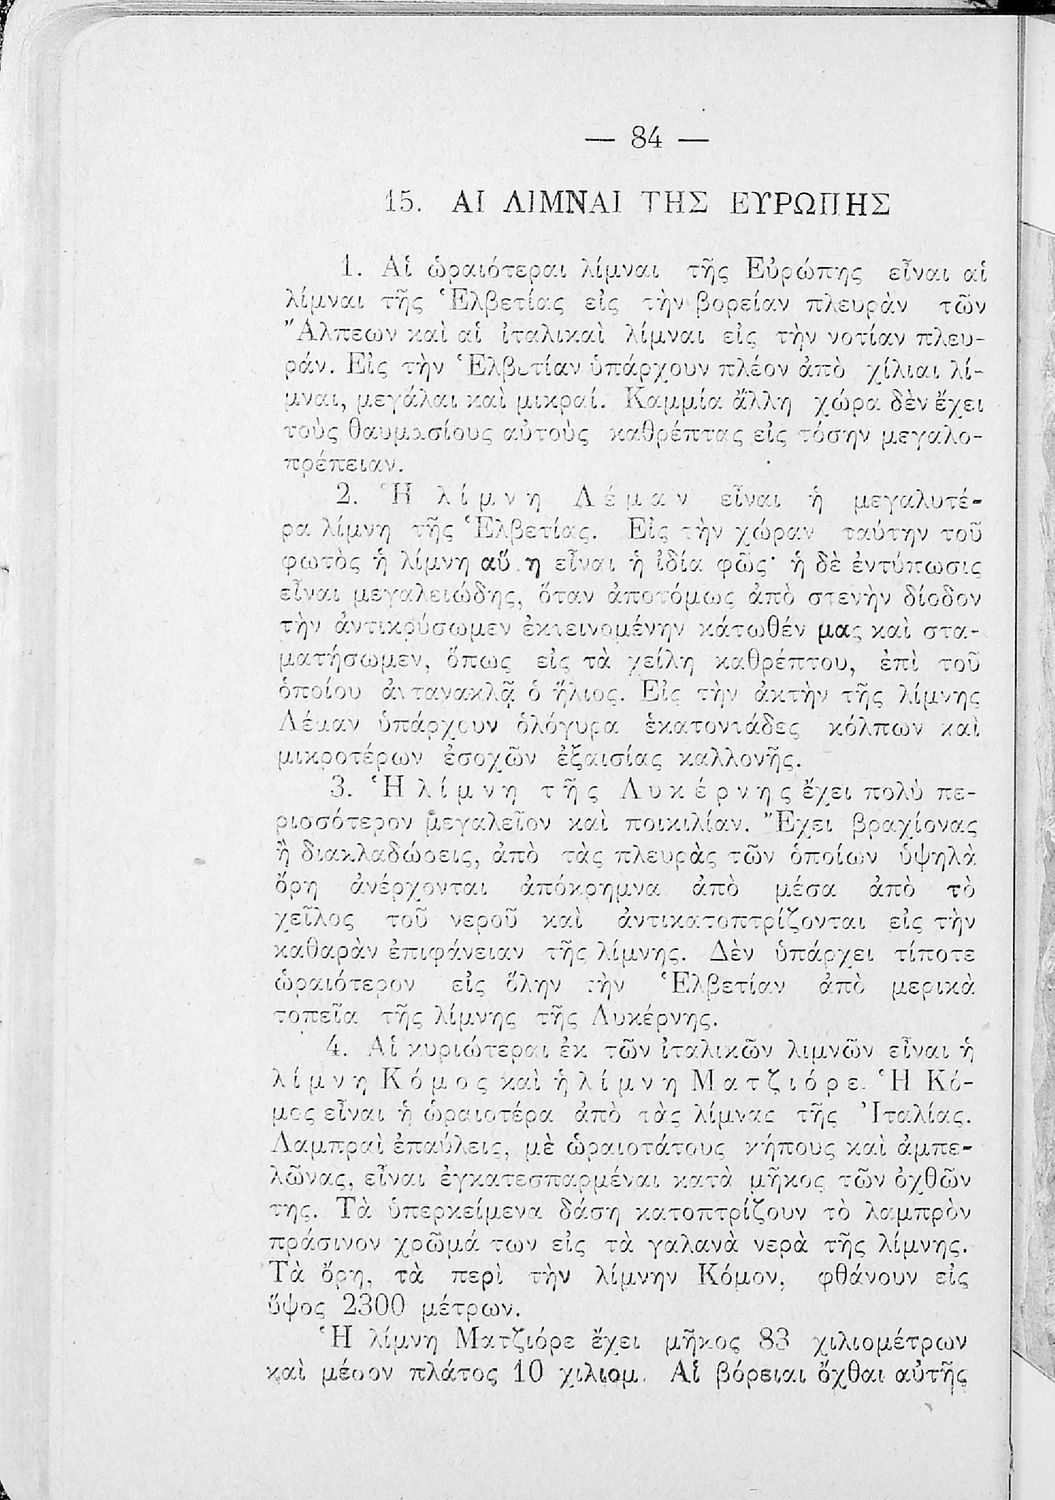 — 84 —
15. ΑΙ ΛΙΜΝΑΙ ΤΗΣ ΕΥΡΩΠΗΣ
1. Αἱ ὡραιότεραι λίμναι τῆς Εὐρώπης εἶναι αἱ
λίμναι τῆς Ἑλβετίας εἰς τὴν βορείαν πλευρὰν τῶν
Ἄλπεων καὶ αἱ ἰταλικαὶ λίμναι εἰς τὴν νοτίαν πλευ-
ράν. Εἰς τὴν Ἑλβετίαν ὑπάρχουν πλέον ἀπὸ χίλιαι λί-
μναι, μεγάλαι καὶ μικραί. Καμμία ἄλλη χώρα δὲν ἔχει
τοὺς θαυμασίους αὐτοὺς καθρέπτας εἰς τόσην μεγαλο-
πρέπειαν.
2. Ἡ λίμνη Λέμαν εἶναι ἡ μεγαλυτέ-
ρα λίμνη τῆς Ἑλβετίας. Εἰς τὴν χώραν ταύτην τοῦ
φωτὸς ἡ λίμνη αὕτη εἶναι ἡ ἰδία φῶς· ἡ δὲ ἐντύπωσις
εἶναι μεγαλειώδης, ὅταν ἀποτόμως ἀπὸ στενὴν δίοδον
τὴν ἀντικρύσωμεν ἐκτεινομένην κάτωθέν μας καὶ στα-
ματήσωμεν, ὅπως εἰς τὰ χείλη καθρέπτου, ἐπὶ τοῦ
ὁποίου ἀντανακλᾷ ὁ ἥλιος. Εἰς τὴν ἀκτὴν τῆς λίμνης
Λέμαν ὑπάρχουν ὁλόγυρα ἑκατοντάδες κόλπων καὶ
μικροτέρων ἐσοχῶν ἐξαισίας καλλονῆς.
3. Ἡ λίμνη τῆς Λυκέρνης ἔχει πολὺ πε-
ρισσότερον μεγαλεῖον καὶ ποικιλίαν. Ἔχει βραχίονας
ἢ διακλαδώσεις, ἀπὸ τὰς πλευρὰς τῶν ὁποίων ὑψηλὰ
ὄρη ἀνέρχονται ἀπόκρημνα ἀπὸ μέσα ἀπὸ τὸ
χεῖλος τοῦ νεροῦ καὶ ἀντικατοπτρίζονται εἰς τὴν
καθαρὰν ἐπιφάνειαν τῆς λίμνης. Δὲν ὑπάρχει τίποτε
ὡραιότερον εἰς ὅλην τὴν Ἑλβετίαν ἀπὸ μερικὰ
τοπεῖα τῆς λίμνης τῆς Λυκέρνης.
4. Αἱ κυριώτεραι ἐκ τῶν ἰταλικῶν λιμνῶν εἶναι ἡ
λίμνη Κόμος καὶ ἡ λίμνη Ματζιόρε. Ἡ Κό-
μος εἶναι ἡ ὡραιοτέρα ἀπὸ τὰς λίμνας τῆς Ἰταλίας.
Λαμπραὶ ἐπαύλεις, μὲ ὡραιοτάτους κήπους καὶ ἀμπε-
λῶνας, εἶναι ἐγκατεσπαρμέναι κατὰ μῆκος τῶν ὀχθῶν
της. Τὰ ὑπερκείμενα δάση κατοπτρίζουν τὸ λαμπρὸν
πράσινον χρῶμά των εἰς τὰ γαλανὰ νερὰ τῆς λίμνης.
Τὰ ὄρη, τὰ περὶ τὴν λίμνην Κόμον, φθάνουν εἰς
ὕψος 2300 μέτρων.
Ἡ λίμνη Ματζιόρε ἔχει μῆκος 83 χιλιομέτρων
καὶ μέσον πλάτος 10 χιλιομ. Αἱ βόρειαι ὄχθαι αὐτῆς